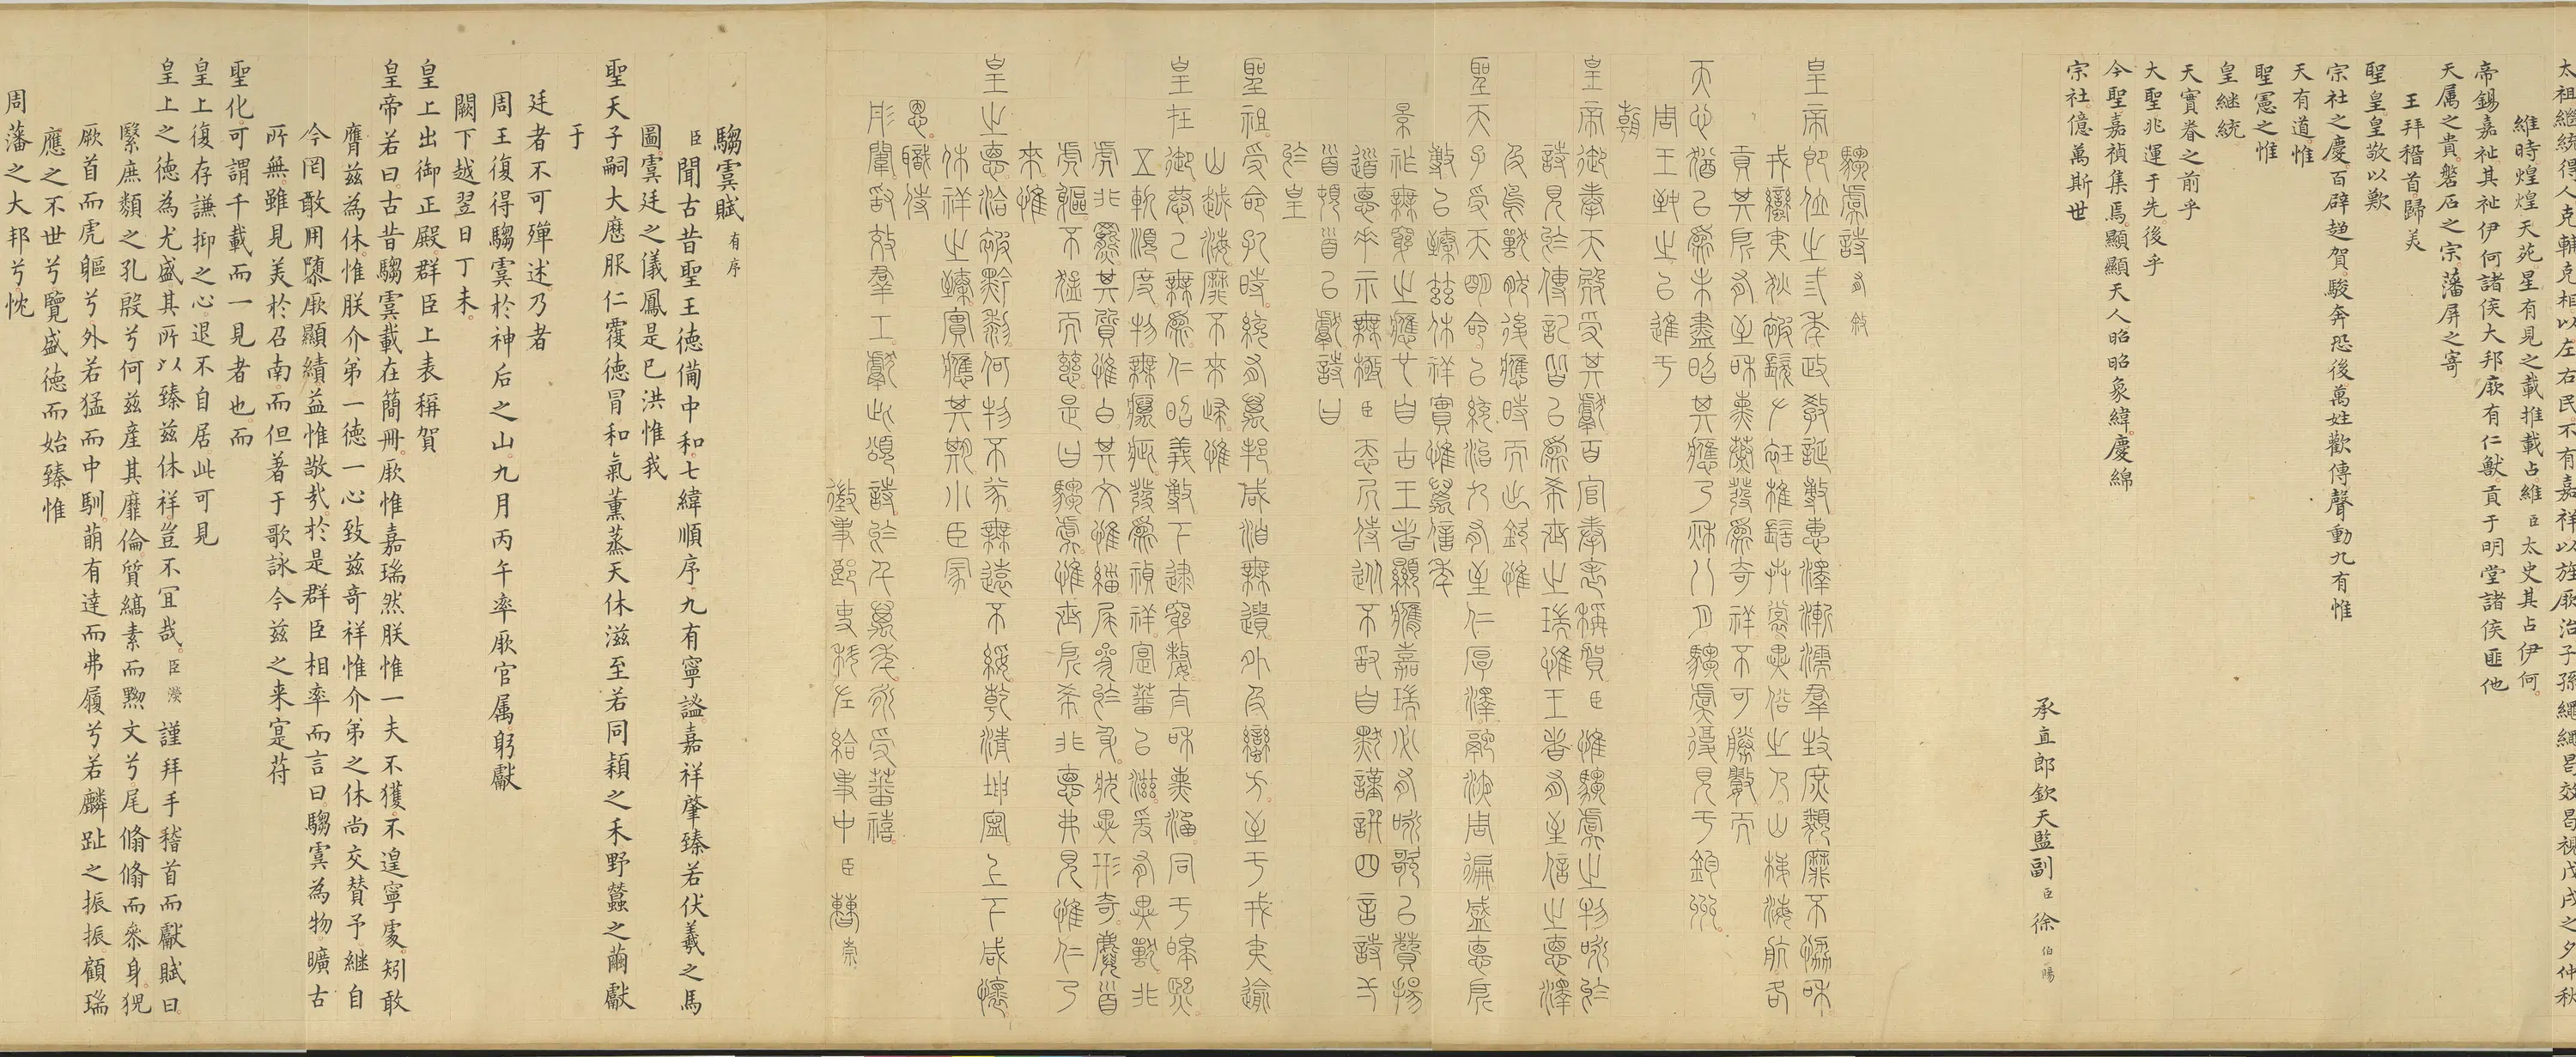 太祖繼統得人克輔克相以左右民不有嘉祥以旌厥治子孫繩繩曷效曷視戊戌之夕仲秋
維時煌煌天苑星有見之載推載占維臣太史其占伊何
帝錫嘉祉其祉伊何諸侯大邦厥有仁獸貢于明堂諸侯匪他
天属之貴磐石之宗藩屏之寄
王拜稽首歸美
聖皇皇敬以歎
宗社之慶百辟趨賀駿奔恐後萬姓歡傳聲動九有惟
天有道惟
聖憲之惟
皇繼統
天實眷之前乎
大聖兆運于先後乎
今聖嘉禎集焉顯顯天人昭昭象緯慶綿
宗社億萬斯世
承直郎欽天監副臣徐伯暘
騶虞詩有敘
皇帝即位之弍年政教誕敷惠澤漸濡羣枝庶類靡不協咊
戎蠻夷狄被髮左衽椎髻卉裳異俗之人山梯海航各
貢其所有至咊熏蒸發爲奇祥不可勝數而
天心猶以爲未盡昭其應乃秌八月騶虞復見于鈞州
周王之以進于
朝
皇帝御奉天殿受其獻百官奉表稱賀臣惟騶虞之物詠於
詩見於傳記皆以爲希世之瑞惟王者有至信之惪澤
及鳥獸然後應時而出欽惟
聖天子受天明命以統治九有至仁厚澤融浹周徧盛惪所
敷以臻茲休祥實惟萬年
景祚無窮之應也自古王者顯膺嘉瑞必有詠歌以贊揚
惪示無極臣忝侍從不敢自默謹譔四言詩
首頓首以獻詩曰
於皇
聖祖受命孔時統有萬邦咸治無遺外及蠻方至于戎夷踰
山越海靡不來歸惟
皇在御恭己無爲仁昭義敷下逮窮嫠咊熏同于皞熙
五軌順度物無癘疵發爲禎祥寔蕃以滋爰有異獸非
虎非羆其質惟白其文惟緇尾參於身狀異形奇麇首
虎軀不猛而慈是曰騶虞惟世所希非惪弗見惟仁乃
來惟
皇之惪洽被黔黎何物不蒙無遠不綏乾清坤寧上下咸懷
休祥之臻實應其期小臣冡
恩職侍
彤闈敢效羣工獻此頌詩於千萬年永受蕃禧
徵事郎吏科左給事中臣曹崇
騶虞賦有序
臣聞古昔聖王德備中和七緯順序九有寧謐嘉祥肇臻若伏羲之馬
圖虞廷之儀鳳是已洪惟我
聖天子嗣大厯服仁覆德冒和氣薰蒸天休滋至若同穎之禾野蠶之繭獻
于
廷者不可殫述乃者
周王復得騶虞於神后之山九月丙午率厥官属躬獻
闕下越翌日丁未
皇上出御正殿群臣上表稱賀
皇帝若曰古昔騶虞載在簡冊厥惟嘉瑞然朕惟一夫不獲不遑寧處矧敢
膺茲為休惟朕介弟一德一心致茲奇祥惟介弟之休尚交賛予継自
今罔敢用隳厥顯績益惟敬㢤於是群臣相率而言曰騶虞為物曠古
所無雖見美於召南而但著于歌詠今茲之来寔荷
聖化可謂千載而一見者也而
皇上復存謙抑之心退不自居此可見
皇上之德為尤盛其所以臻茲休祥豈不冝哉臣瀠謹拜手稽首而獻賦曰
繄庶類之孔殷兮何茲産其靡倫質縞素而黝文兮尾翛翛而叅身猊
厥首而虎軀兮外若猛而中馴萌有達而弗履兮若麟趾之振振顧瑞
應之不世兮覽盛德而始臻惟
周藩之大邦兮忱